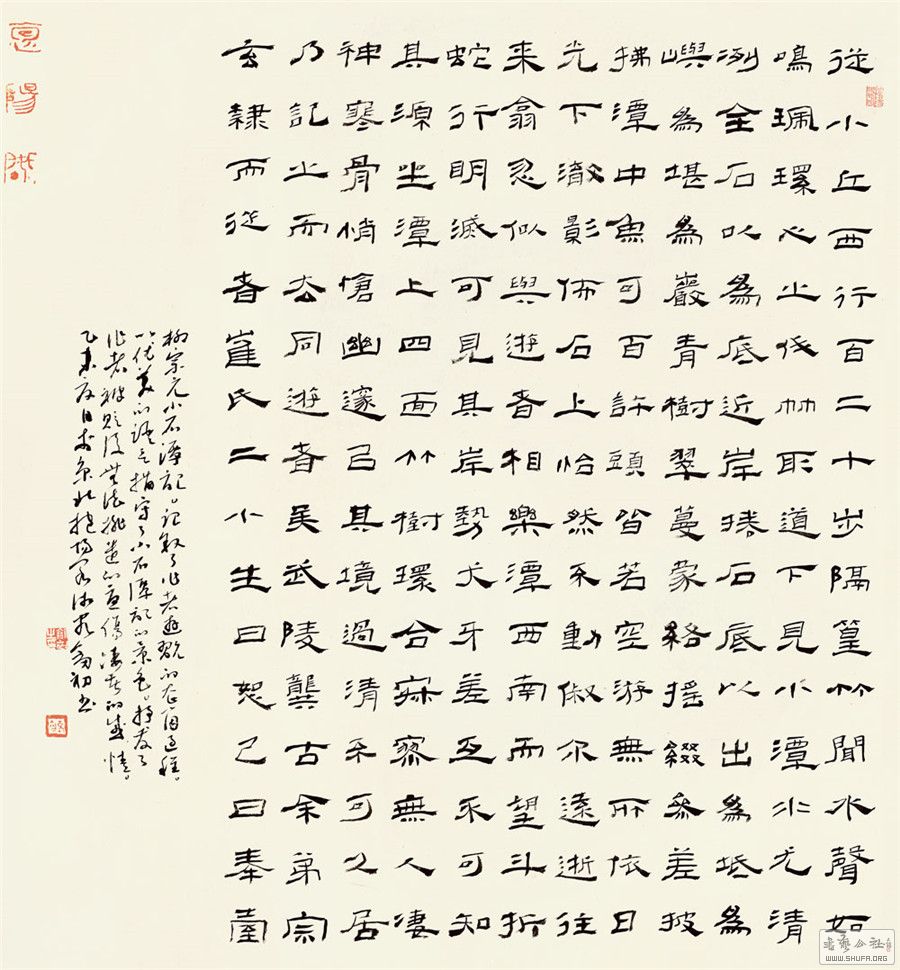 從小丘西行百二十步隔篁竹聞水聲如
鳴珮環心之伐竹取道下見小潭水尤清
冽全石以為底近岸捲石底以出為坻為
嶼為堪為巖青樹翠蔓蒙絡搖綴參差披
拂潭中魚可百許頭皆若空游無所依日
光下澈影佈石上怡然不動俶尔遠逝往
来翕忽似與遊者相樂潭西南而望斗折
蛇行明滅可見其岸勢犬牙差互不可知
其源坐潭上四面竹樹環合寂寥無人凄
神寒骨悄愴幽邃以其境過清不可久居
乃記之而去同遊者吳武陵龔古余弟宗
玄隸而從者崔氏二小生曰恕己曰奉壹
柳宗元小石潭記記敘了作者遊玩的整個過程
以优美的語言描寫了小石潭記的景色抒發了
作者被貶後無法排遣的憂傷淒苦的感情
乙未夏日於京北
書藝公社
WWW.SHUFA.ORG